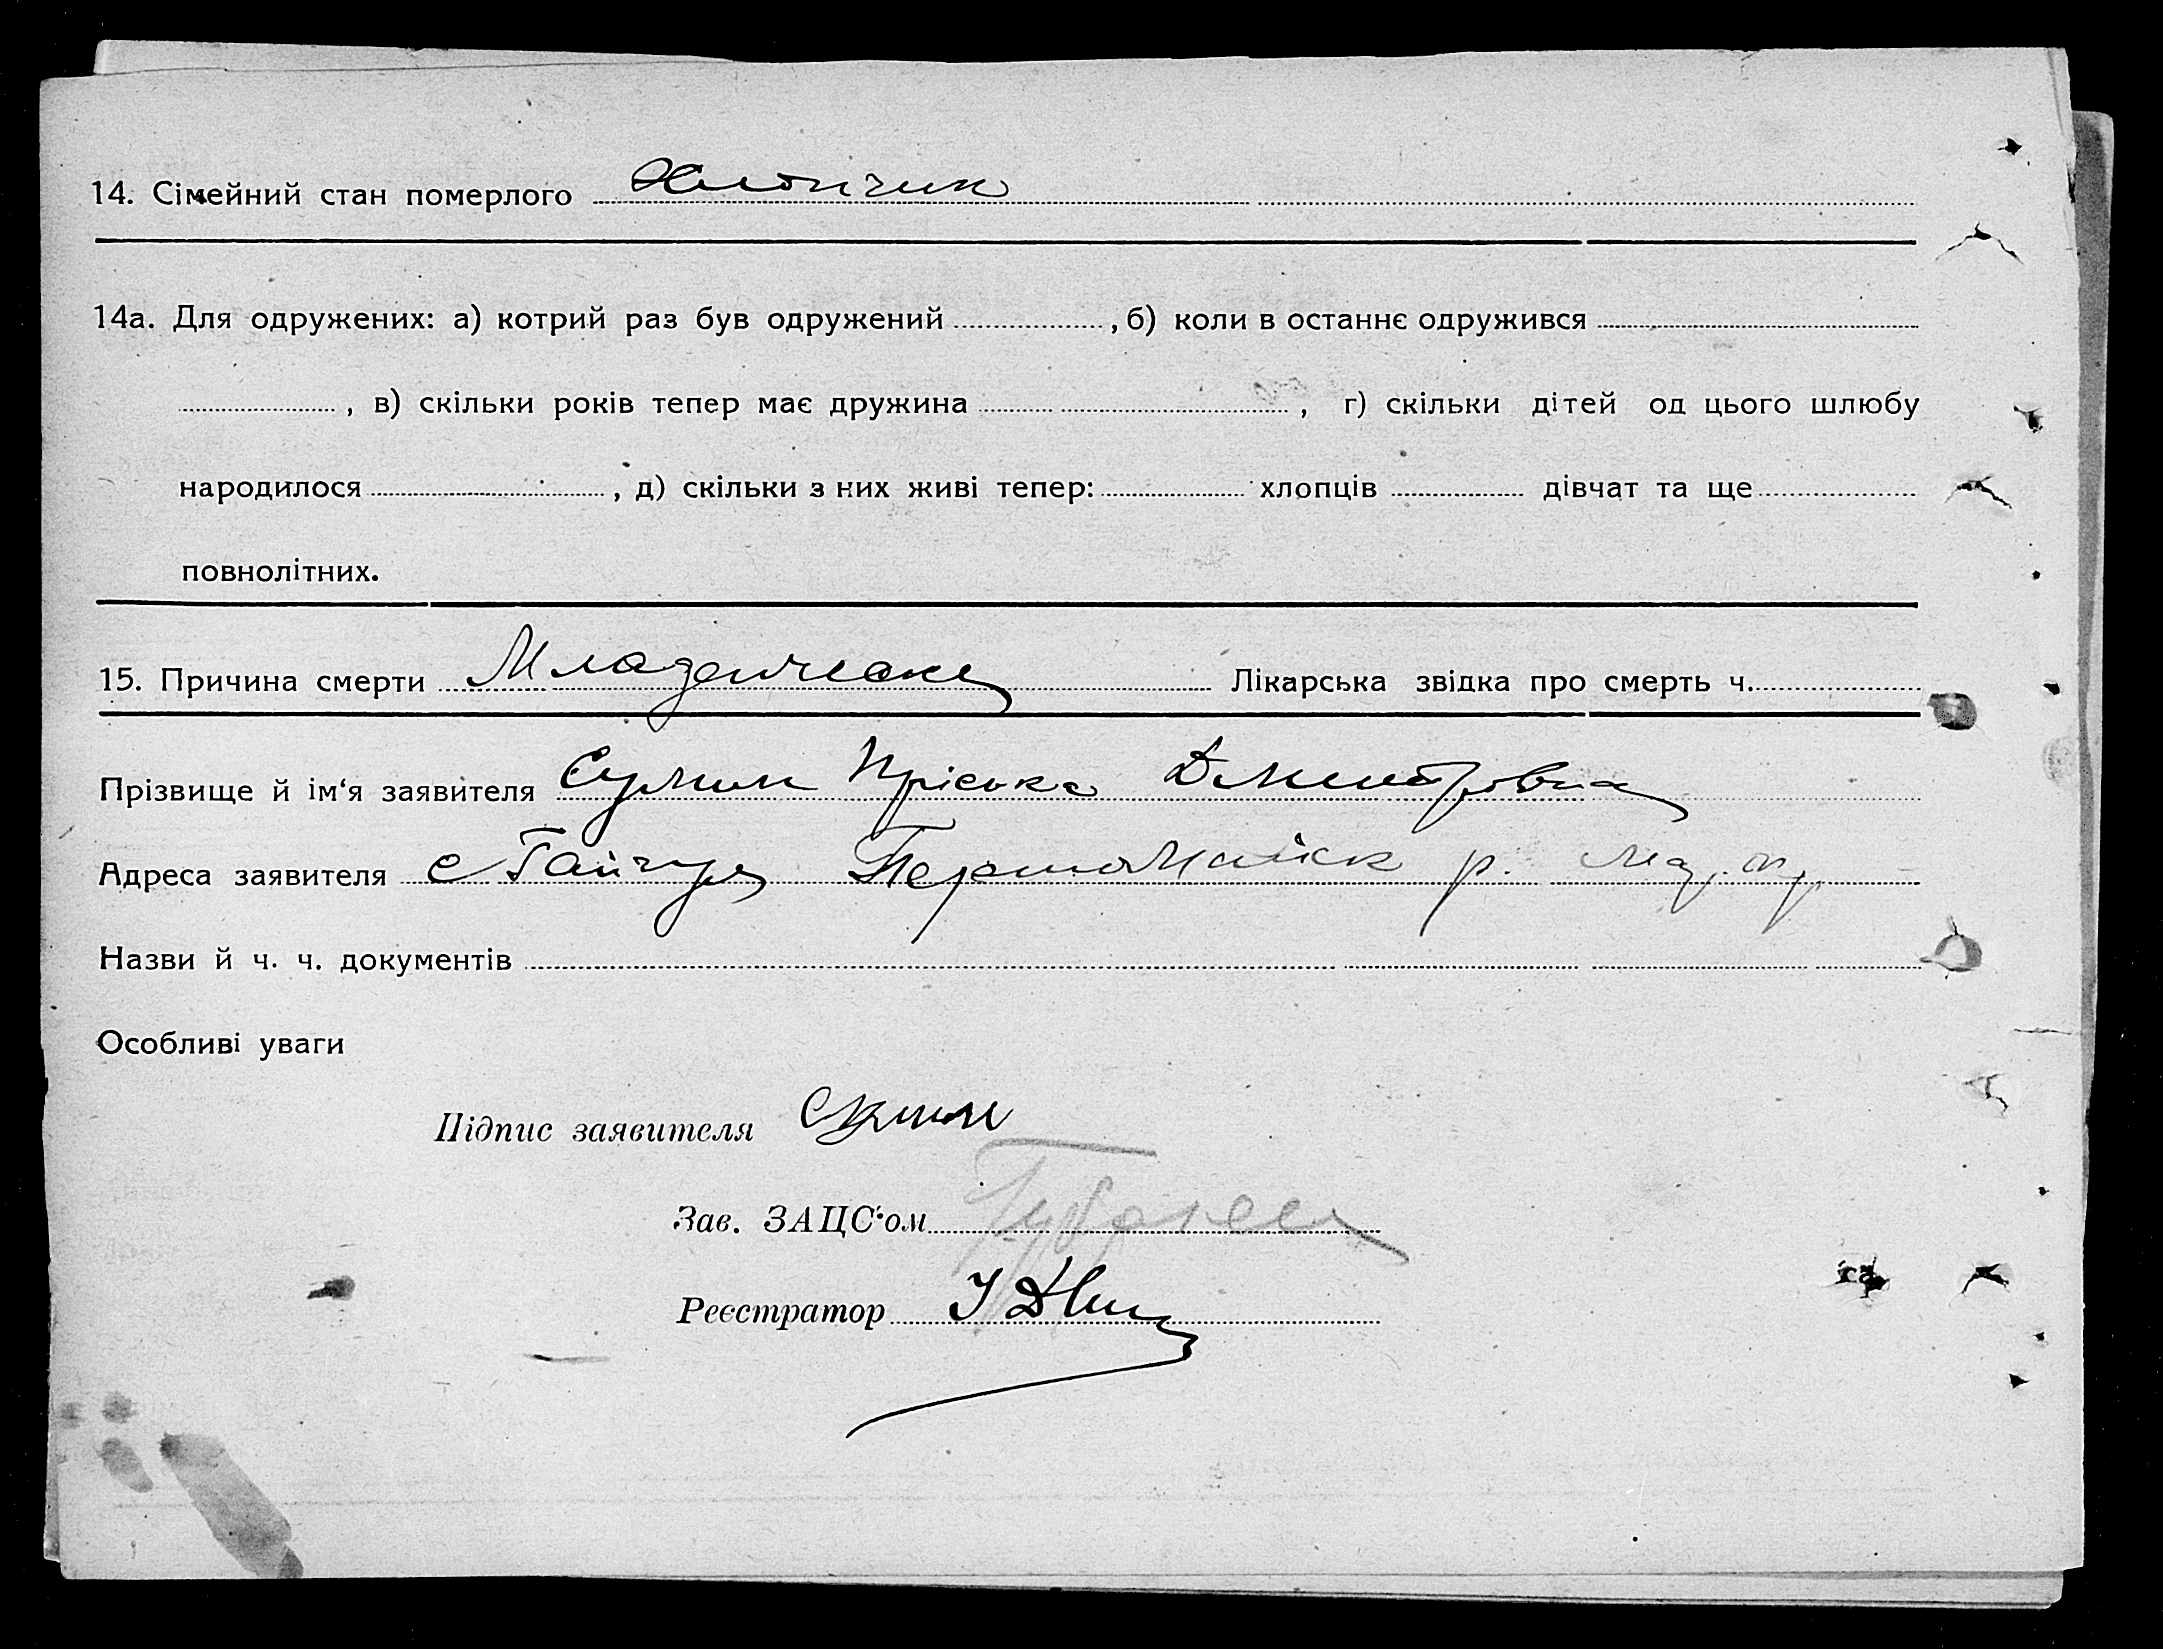 14. Сімейний стан померлого Хлопчик
14а. Для одружених: а) котрий раз був одружений , б) коли в останнє одружився
, в) скільки років тепер має дружина , г) скільки дітей од цього шлюбу
народилося , д) скільки з них живі тепер: хлопців дівчат та ще
повнолітних.
15. Причина смерти Младенческа Лікарська звідка про смерть ч.
Прізвище й ім'я заявителя Сумин Пріська Дмитровна
Адреса заявителя с Гайчуль Першомайск р.
Назви й ч. ч. документів
Особливі уваги
Підпис заявителя
Зав. ЗАЦС'ом
Реєстратор